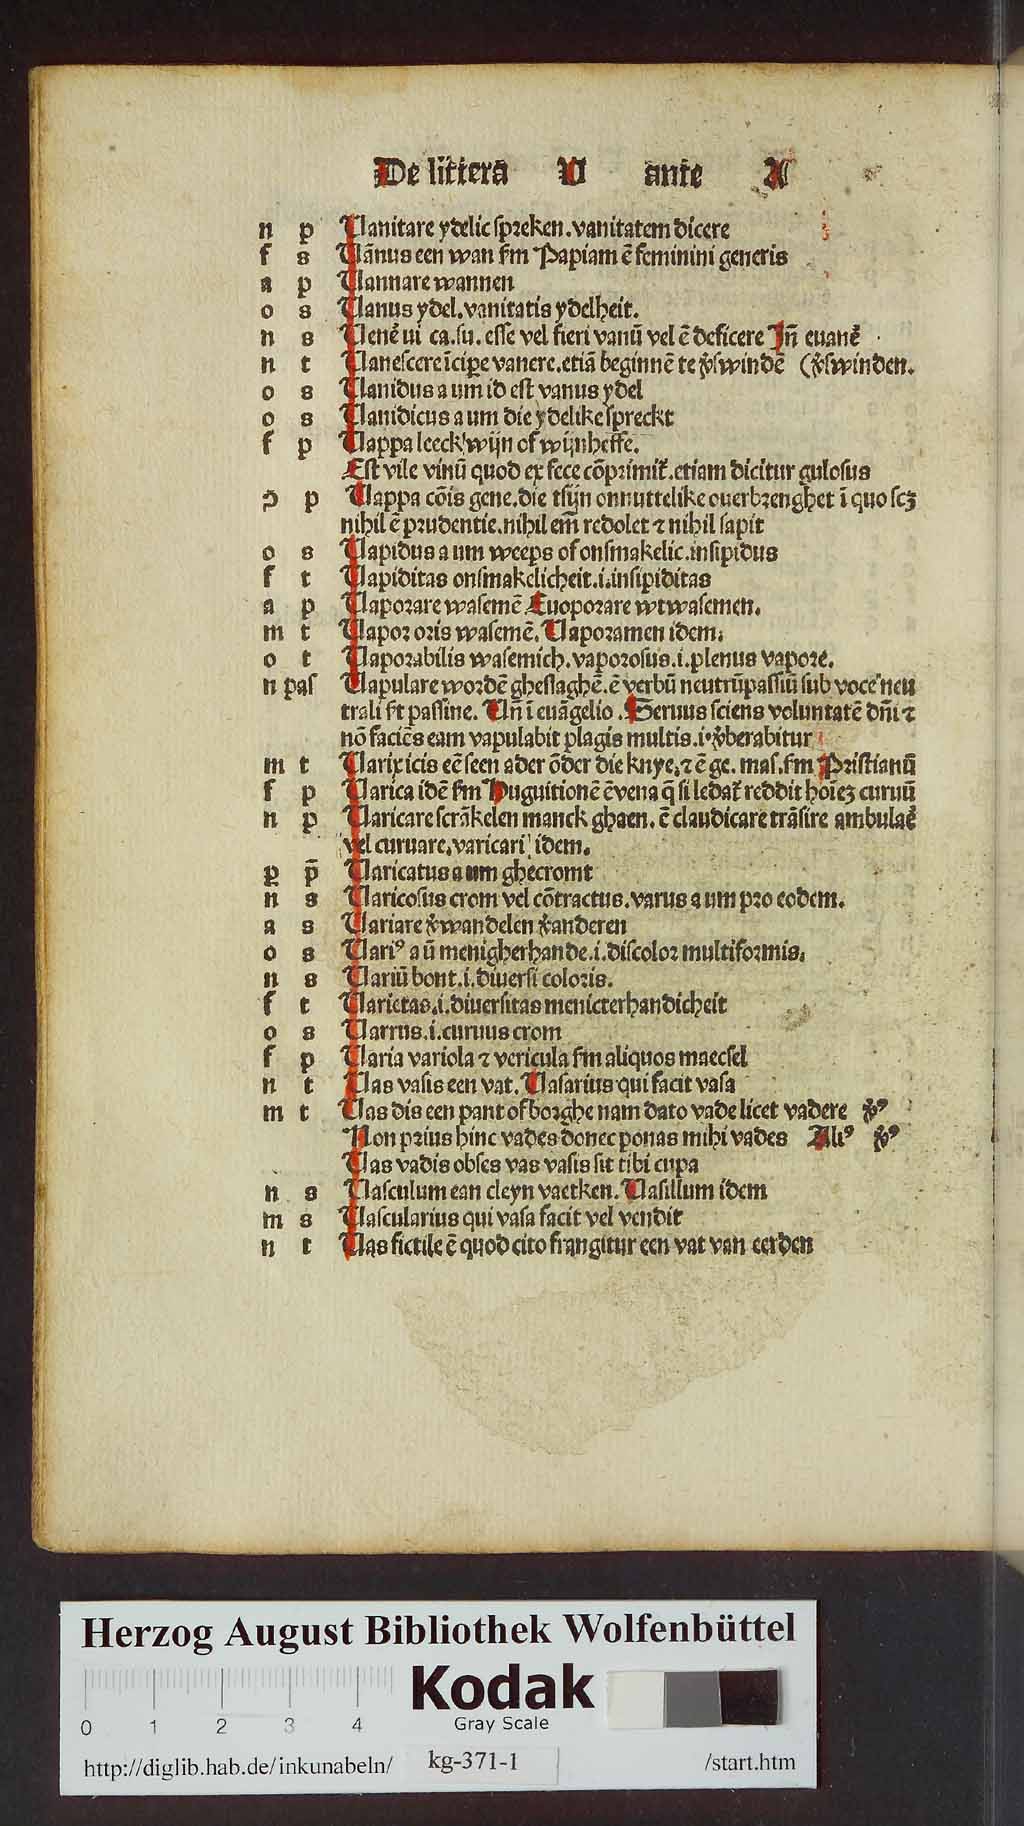 De litterā U ante A
n p Uanitare ydelic spreken. vanitatem dicere
f s Uānus een wan sm Papiam ē feminini generis
a p Uannare wannen
o s Uanus ydel. vanitatis ydelheit.
n s ui ca. su. esse vel fieri vanū vel ē deficere
n t Uanescere īcipe vanere. etiā beginnē te v̾swindē (v̾swinden.
o s Uanidus a um id est vanus ydel
o s Uanidicus a um die ydelike spreckt
f p Uappa leeck wijn of wijnheffe.
Est vile vinū quod ex fece cōprimit̉. etiam dicitur gulosus
ꝯ p Uappa cōis gene. die tsijn onnuttelike ouerbrenghet ī quo scꝫ
nihil ē prudentie. nihil em̄ redolet ⁊ nihil sapit
o s Uapidus a um weeps of onsmakelic. insipidus
f t Uapiditas onsmakelicheit. i. insipiditas
a p Uaporare wasemē Euoporare wtwasemen.
m t Uapor oris wasemē. Uaporamen idem.
o t Uaporabilis wasemich. vaporosus. i. plenus vapore.
n pas Uapulare wordē gheslaghē. ē verbū neutrūpassiuū sub voce neu
trali st passine. Un̄ ī euāgelio. Seruus sciens voluntatē dn̄i ⁊
nō faciēs eam vapulabit plagis multis. i. v̾berabitur
m t Uarix icis eē seen ader ōder die knye. ⁊ ē ge. mas. sm Pristianū
f p Uarica idē sm Huguitionē ē vena q̄ si ledat̉ reddit hoīeꝫ curuū
n p Uaricare scrākelen manck ghaen. ē claudicare trāsire ambulaē
vel curuare. varicari idem.
ꝑ p̄ Uaricatus a um ghecromt
n s Uaricosus crom vel cōtractus. varus a um pro eodem.
a s Uariare v̾wandelen v̾anderen
o s Uariꝰ a ū menigherhande. i. discolor multiformis.
n s Uariū bont. i. diuersi coloris.
f t Uarietas. i. diuersitas menicterhandicheit
o s Uarrus. i. curuus crom
f p Uaria variola ⁊ vericula sm aliquos maecsel
n t Uas vasis een vat. Uasarius qui facit vasa
m t Uas dis een pant of borghe nam dato vade licet vadere v̾ꝰ
Non prius hinc vades donec ponas mihi vades Aliꝰ v̾ꝰ
Uas vadis obses vas vasis sit tibi cupa
n s Uasculum ean cleyn vaetken. Uasillum idem
m s Uascularius qui vasa facit vel vendit
n t Uas fictile ē quod cito frangitur een vat van eerden
Herzog August Bibliothek Wolfenbüttel
Kodak
Gray Scale
0 1 2 3 4
http://diglib.hab.de/inkunabeln/ kg-371-1 /start.htm